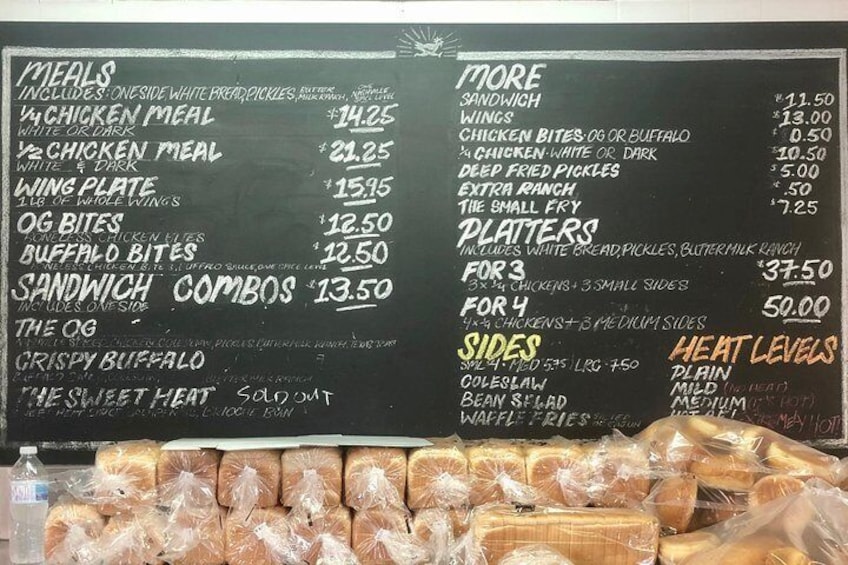 MEALS
INCLUDES: ONE SIDE, WHITE BREAD, PICKLES, BUTTER MILK RANCH,
1/4 CHICKEN MEAL $14.25
WHITE OR DARK
1/2 CHICKEN MEAL $21.25
WHITE & DARK
WING PLATE $15.95
1 LB. OF WHOLE WINGS
OG BITES $12.50
BONELESS CHICKEN BITES
BUFFALO BITES $12.50
BONELESS CHICKEN BITES, BUFFALO SAUCE, ONE SPICE LEVEL
SANDWICH COMBOS $13.50
INCLUDES ONE SIDE
THE OG
COLESLAW, PICKLES, BUTTERMILK RANCH, TEXAS TOAST
CRISPY BUFFALO
BUTTERMILK RANCH
THE SWEET HEAT SOLD OUT
BRIOCHE BUN
MORE
SANDWICH $11.50
WINGS $13.00
CHICKEN BITES·OG OR BUFFALO 0.50
1/4 CHICKEN·WHITE OR DARK 10.50
DEEP FRIED PICKLES $5.00
EXTRA RANCH .50
THE SMALL FRY $7.25
PLATTERS
INCLUDES WHITE BREAD, PICKLES, BUTTERMILK RANCH
FOR 3 $37.50
3 x 1/4 CHICKENS + 3 SMALL SIDES
FOR 4 50.00
4 x 1/4 CHICKENS + 3 MEDIUM SIDES
SIDES
SML 4 · MED 5.75 / LRG 7.50
COLESLAW
BEAN SALAD
WAFFLE FRIES
HEAT LEVELS
PLAIN
MILD (NO HEAT)
MEDIUM (IT'S HOT)
EXTREMELY HOT!